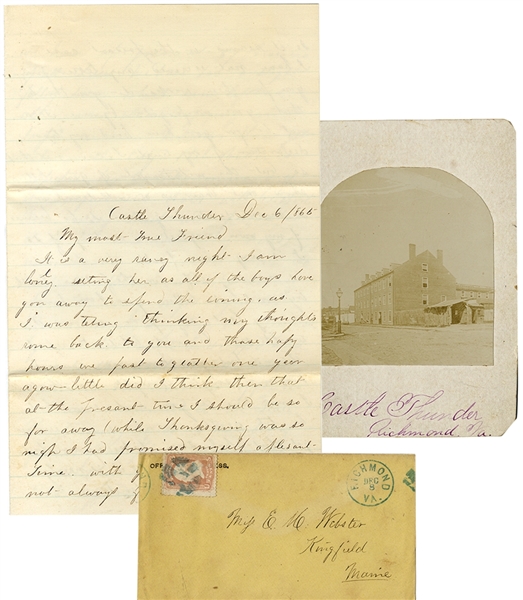 Castle Thunder Dec 6/1865
My most True Friend
It is a very rainy night I am
lonely seting her as all of the boys have
gon away to spend the evning, as
I was teling thinking my thoughts
come back to you and those hapy
hours we past togeather one year
agow little did I think then that
at the presant time I should be so
far away (while Thanksgiving was so
nigh I had promised myself a pleasant
Time with
not always
Castle Thunder
Richmond Va.
OFF SS.
RICHMOND
DEC
8
VA.
Miss E. H. Webster
Kingfield
Maine